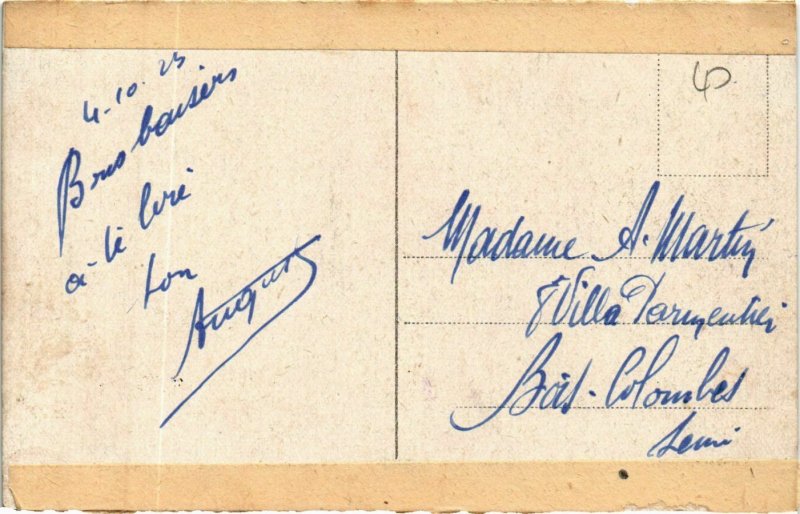 4-10.25
Bons baisers
ton
August
45
Madame A. Martin
8 Villa Parmentier
Bois-Colombes
Seine